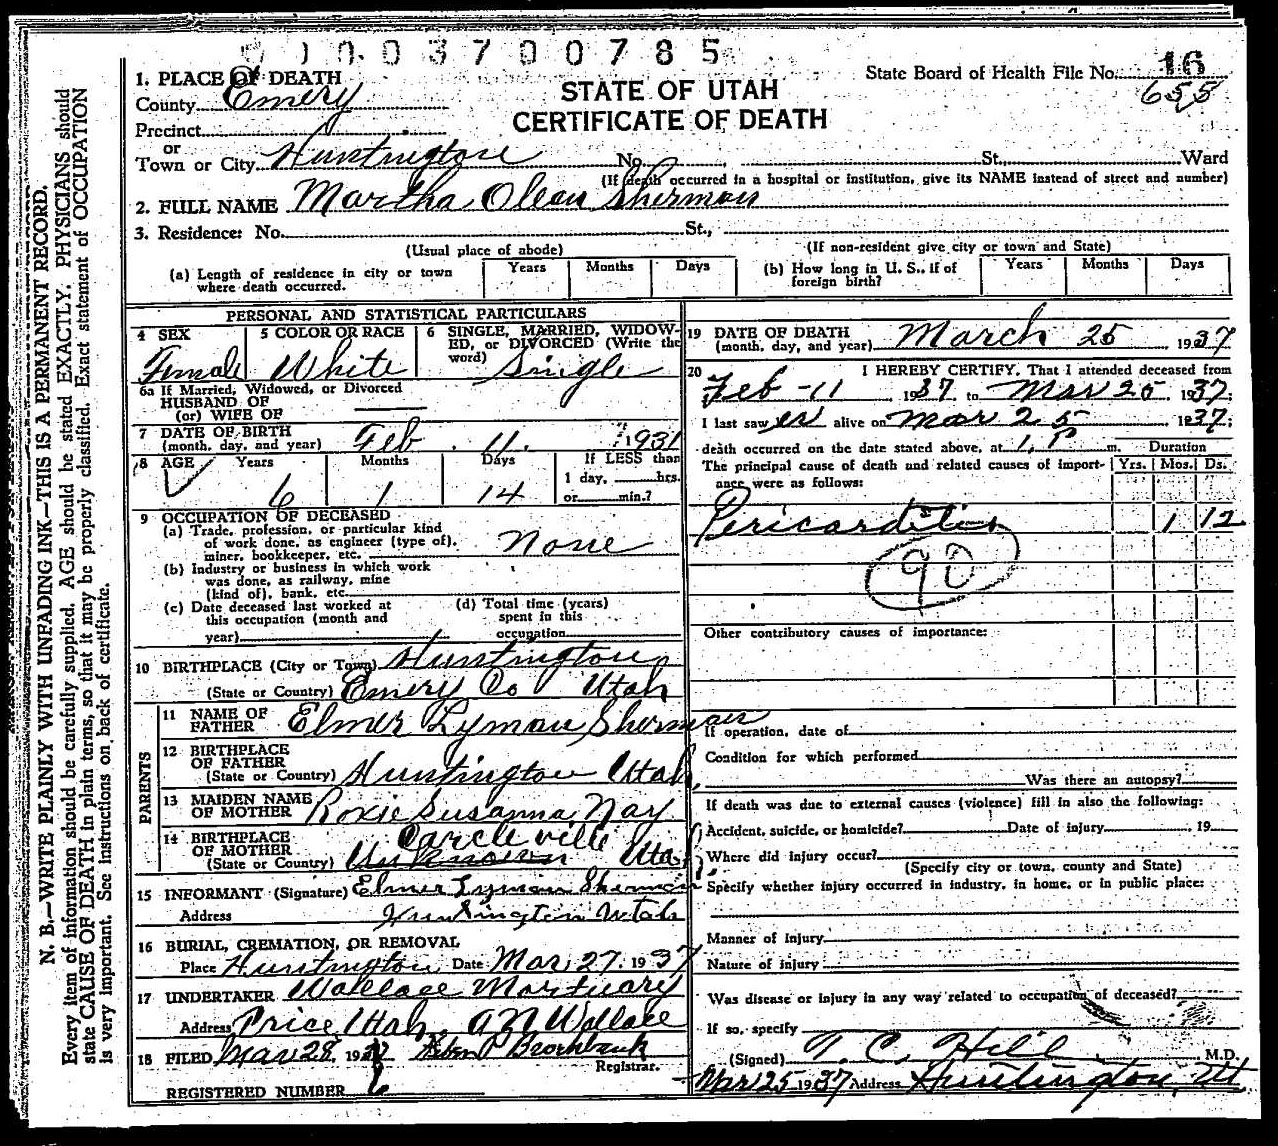 0003700785
1. PLACE OF DEATH
County Emery
STATE OF UTAH
CERTIFICATE OF DEATH
State Board of Health File No. 16
655
Precinct
or
Town or City Huntington No. St. Ward
(If death occurred in a hospital or institution, give its NAME instead of street and number)
2. FULL NAME Martha Olean Sherman
3. Residence: No. St.,
(Usual place of abode) (If non-resident give city or town and State)
(a) Length of residence in city or town where death occurred. Years Months Days
(b) How long in U. S., if of foreign birth? Years Months Days
PERSONAL AND STATISTICAL PARTICULARS
4 SEX Female
5 COLOR OR RACE White
6 SINGLE, MARRIED, WIDOW-
ED, or DIVORCED (Write the
word) Single
6a If Married, Widowed, or Divorced
HUSBAND OF
(or) WIFE OF
7 DATE OF BIRTH
(month, day, and year) Feb. 11. 1931
8 AGE Years 6 Months 1 Days 14
If LESS than
1 day, hrs.
or min.?
9 OCCUPATION OF DECEASED
(a) Trade, profession, or particular kind
of work done, as engineer (type of),
miner, bookkeeper, etc. None
(b) Industry or business in which work
was done, as railway, mine
(kind of), bank, etc.
(c) Date deceased last worked at
this occupation (month and
year)
(d) Total time (years)
spent in this
occupation
10 BIRTHPLACE (City or Town) Huntington
(State or Country) Emery Co Utah
PARENTS
11 NAME OF
FATHER Elmer Lyman Sherman
12 BIRTHPLACE
OF FATHER
(State or Country) Huntington Utah
13 MAIDEN NAME
OF MOTHER Roxie Susanna Nay
14 BIRTHPLACE
OF MOTHER Carcleville
(State or Country) Unknown Utah
15 INFORMANT (Signature) Elmer Lyman Sherman
Address Huntington Utah
16 BURIAL, CREMATION, OR REMOVAL
Place Huntington Date Mar 27. 1937
17 UNDERTAKER Wallace Mortuary
Address Price Utah. A N Wallace
18 FILED Mar 28, 1937 P Brockbank
Registrar.
REGISTERED NUMBER 6
19 DATE OF DEATH
(month, day, and year) March 25 1937
20 I HEREBY CERTIFY, That I attended deceased from
Feb - 11 1937 to Mar 25 1937;
I last saw er alive on Mar 25 1937;
death occurred on the date stated above, at 1. P m. Duration
The principal cause of death and related causes of import-
ance were as follows: Yrs. Mos. Ds.
Pericarditis 1 12
90
Other contributory causes of importance:
If operation, date of
Condition for which performed
Was there an autopsy?
If death was due to external causes (violence) fill in also the following:
Accident, suicide, or homicide? Date of injury 19
Where did injury occur?
(Specify city or town, county and State)
Specify whether injury occurred in industry, in home, or in public place:
Manner of injury
Nature of injury
Was disease or injury in any way related to occupation of deceased?
If so, specify
(Signed) T. C. Hill, M.D.
Mar 25 1937 Address Huntington, Ut
N. B.—WRITE PLAINLY WITH UNFADING INK—THIS IS A PERMANENT RECORD.
Every item of information should be carefully supplied. AGE should be stated EXACTLY. PHYSICIANS should
state CAUSE OF DEATH in plain terms, so that it may be properly classified. Exact statement of OCCUPATION
is very important. See instructions on back of certificate.